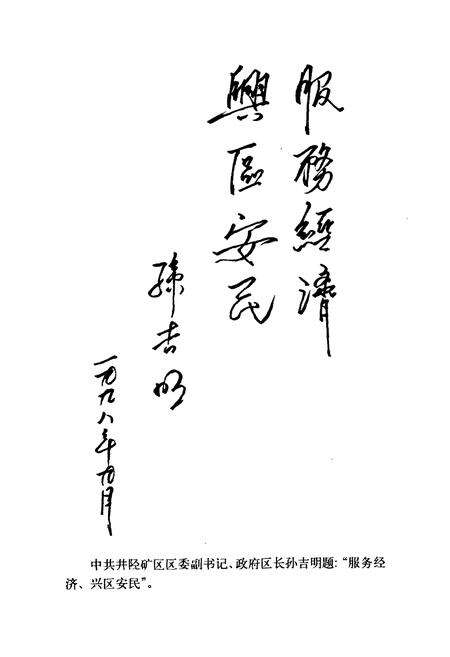 服務經濟
興區安民
孫吉明
一九九八年九月
中共井陉矿区区委副书记、政府区长孙吉明题：“服务经
济、兴区安民”。